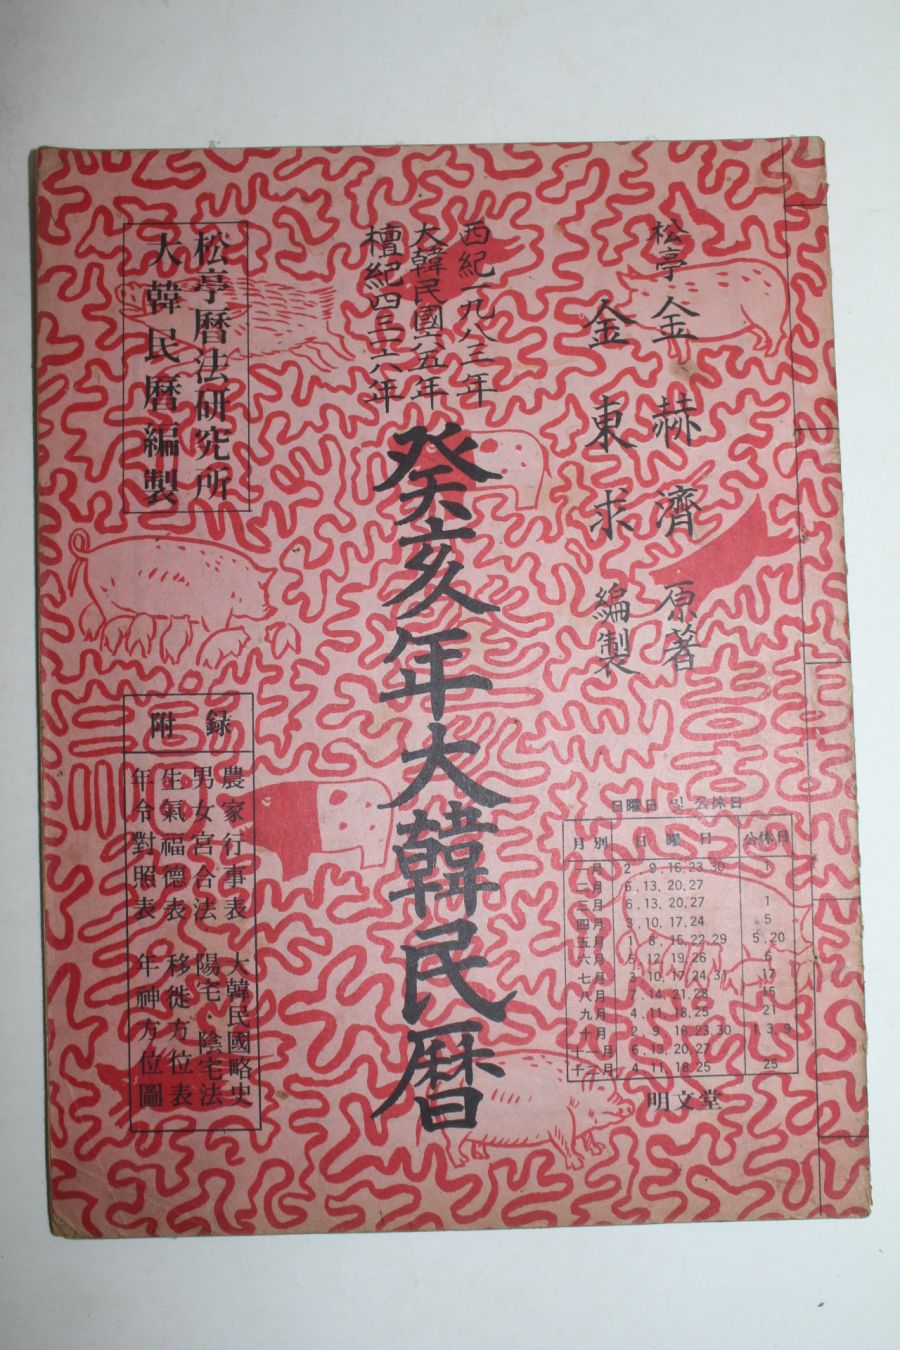 松亭 金赫濟 原著
金東求 編製
西紀一九八三年
大韓民國六五年
檀紀四三一六年
癸亥年大韓民曆
松亭曆法硏究所
大韓民曆編製
附錄
農家行事表 大韓民國略史
男女宮合法 陽宅·陰宅法
生氣福德表 移徙方位表
年令對照表 年神方位圖
日曜日 및 公休日
月別 日曜日 公休日
一月 2 9,16,23,30 1
二月 6,13,20,27
三月 6,13,20,27 1
四月 3,10,17,24 5
五月 1 8,15,22,29 5,20
六月 5 12 19,26 6
七月 3 10,17,24,31 17
八月 7,14,21,28 15
九月 4,11,18,25 21
十月 2,9,16,23,30 1,3,9
十一月 6,13,20,27
十二月 4,11,18,25 25
明文堂